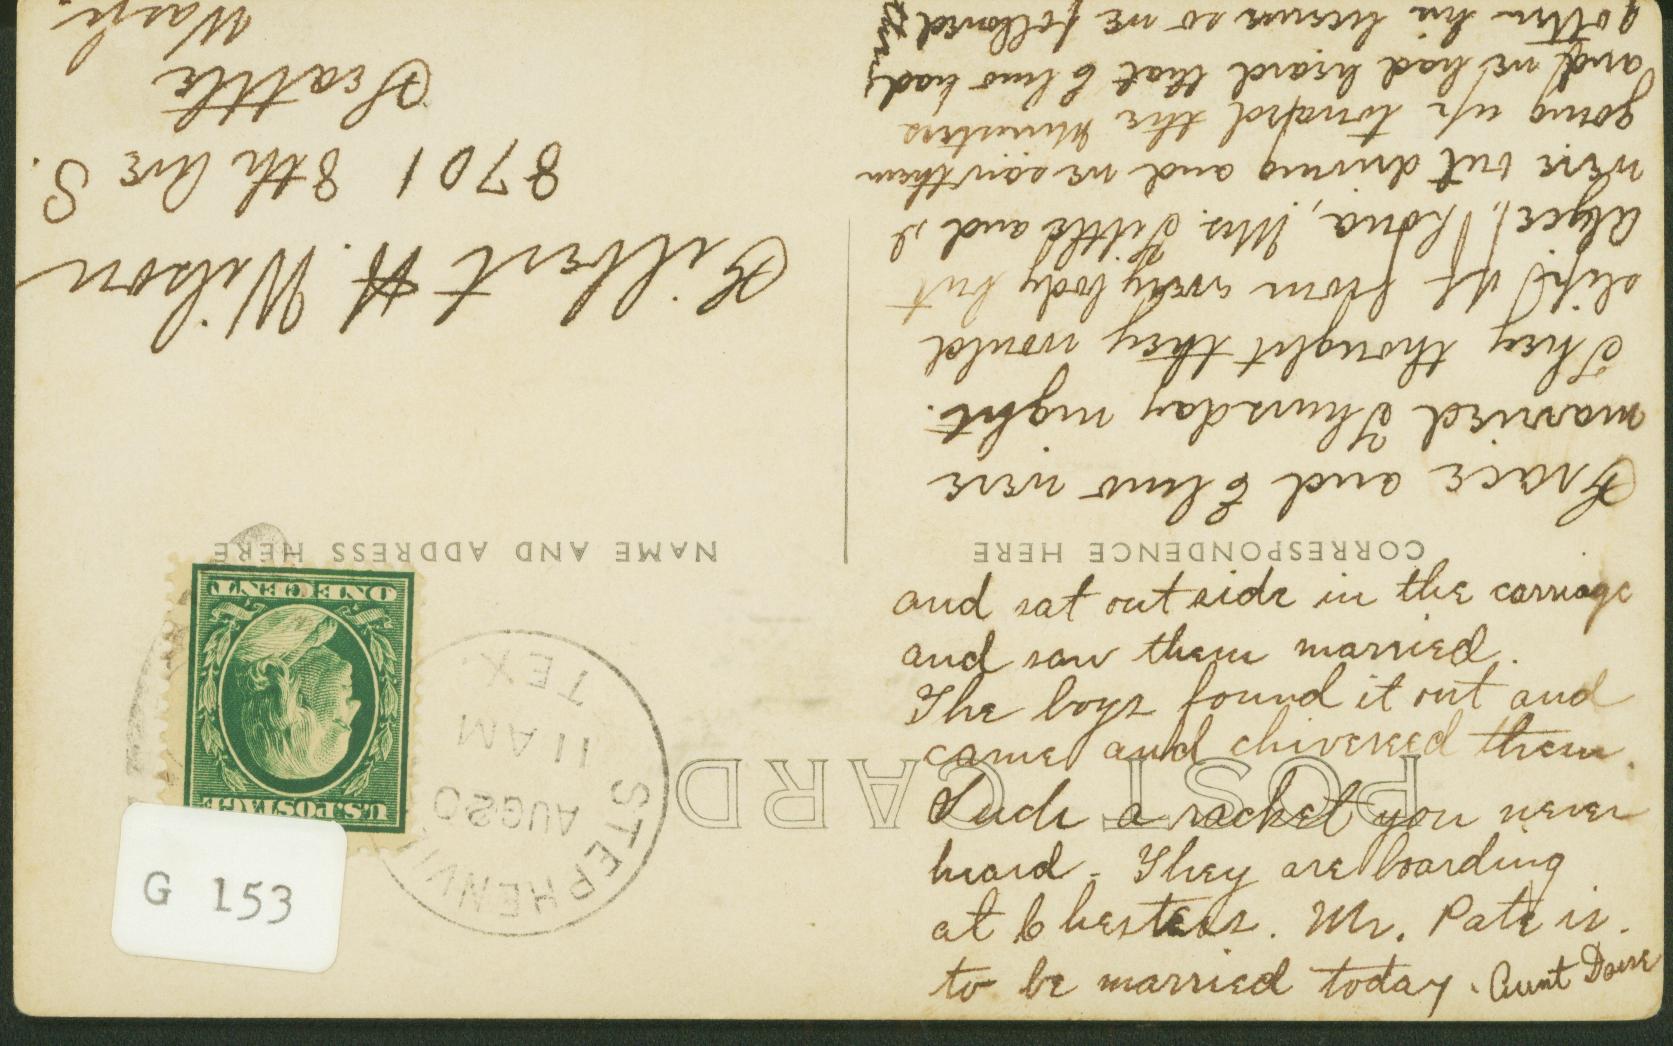 POST CARD
CORRESPONDENCE HERE
NAME AND ADDRESS HERE
U.S. POSTAGE
ONE CENT
STEPHENVI
AUG 20
11 AM
TEX.
G 153
Grace and Elmo were
married Thursday night.
They thought they would
slip off from every body but
Alyce, Rhona, Mrs. Tittle and I
were out driving and we saw them
going up toward the ministers
and we had heard that Elmo had
gotten his license so we followed
them
and sat outside in the carriage
and saw them married.
The boys found it out and
came and chivereed them.
Such a racket you never
heard - They are boarding
at Chesters. Mr. Pate is
to be married today. Aunt
Gilbert H. Wilson
8701 8th Ave S.
Seattle
Wash.